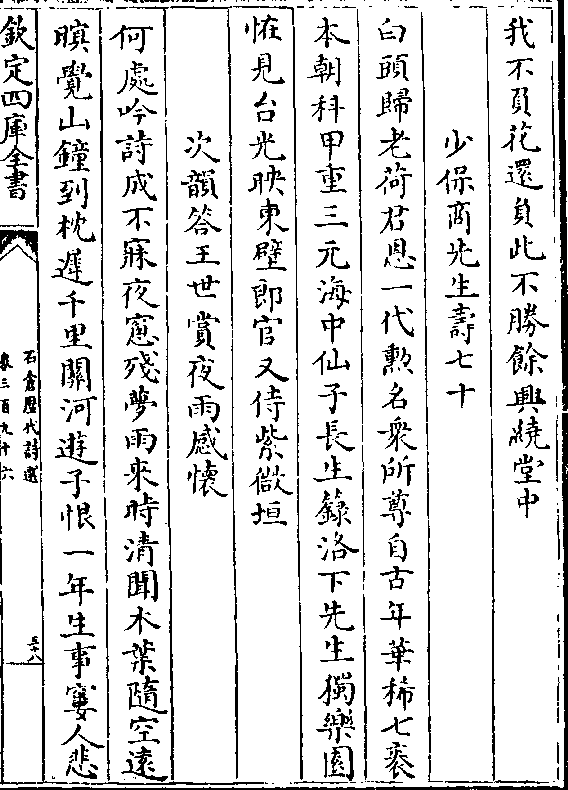 我不負花還負此不勝餘興繞堂中
少保商先生壽七十
白頭歸老荷君恩一代勲名衆所尊自古年華稀七袠
本朝科甲重三元海中仙子長生籙洛下先生獨樂園
恠見台光映東壁郎官又侍紫微垣
次韻答王世賞夜雨感懷
何處吟詩成不寐夜窻殘夢雨來時清聞木葉隨空遠
暝覺山鐘到枕遲千里關河遊子恨一年生事窶人悲
欽定四庫全書
石倉歴代詩選
卷三百九十六
三十八